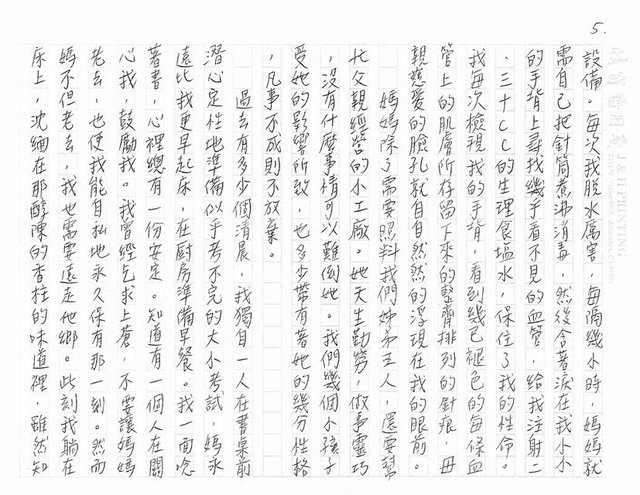 5.
設備。每次我脫水厲害，每隔幾小時，媽媽就
需自己把針筒煮沸消毒，然後含著淚在我小小
的手背上尋找幾乎看不見的血管，給我注射二
、三十CC的生理食塩水，保住了我的性命。
我每次檢視我的手背，看到幾已褪色的每條血
管上的肌膚所存留下來的整齊排列的針痕，母
親慈愛的臉孔就自自然然的浮現在我的眼前。
媽媽除了需要照料我們姊弟五人，還要幫
忙父親經營的小工廠。她天生勤勞，做事靈巧
，沒有什麼事情可以難倒她。我們幾個小孩子
受她的影響所致，也多少帶有著她的幾分性格
，凡事不成則不放棄。
過去有多少個清晨，我獨自一人在書桌前
潛心定性地準備似乎考不完的大小考試，媽永
遠比我更早起床，在厨房準備早餐。我一面唸
著書，心裡總有一份安定。知道有一個人在關
心我，鼓勵我。我曾經乞求上蒼，不要讓媽媽
老去，也使我能自私地永久保有那一刻。然而
媽不但老去，我也需要遠走他鄉。此刻我躺在
床上，沈緬在那醇陳的香桂的味道裡，雖然知